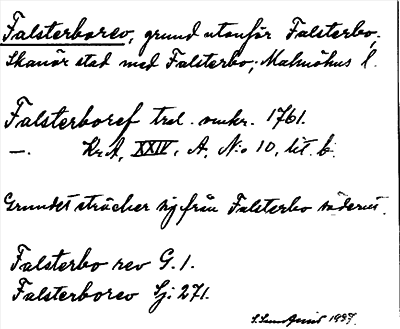 Falsterborev, grund utanför Falsterbo,
Skanör stad med Falsterbo, Malmöhus l.
Falsterboref trol. omkr. 1761.
—. KrA, XXIV, A, N:o 10, lit. b.
Grundet sträcker sig från Falsterbo söderut.
Falsterbo rev G. 1.
Falsterborev Sj. 271.
1937.